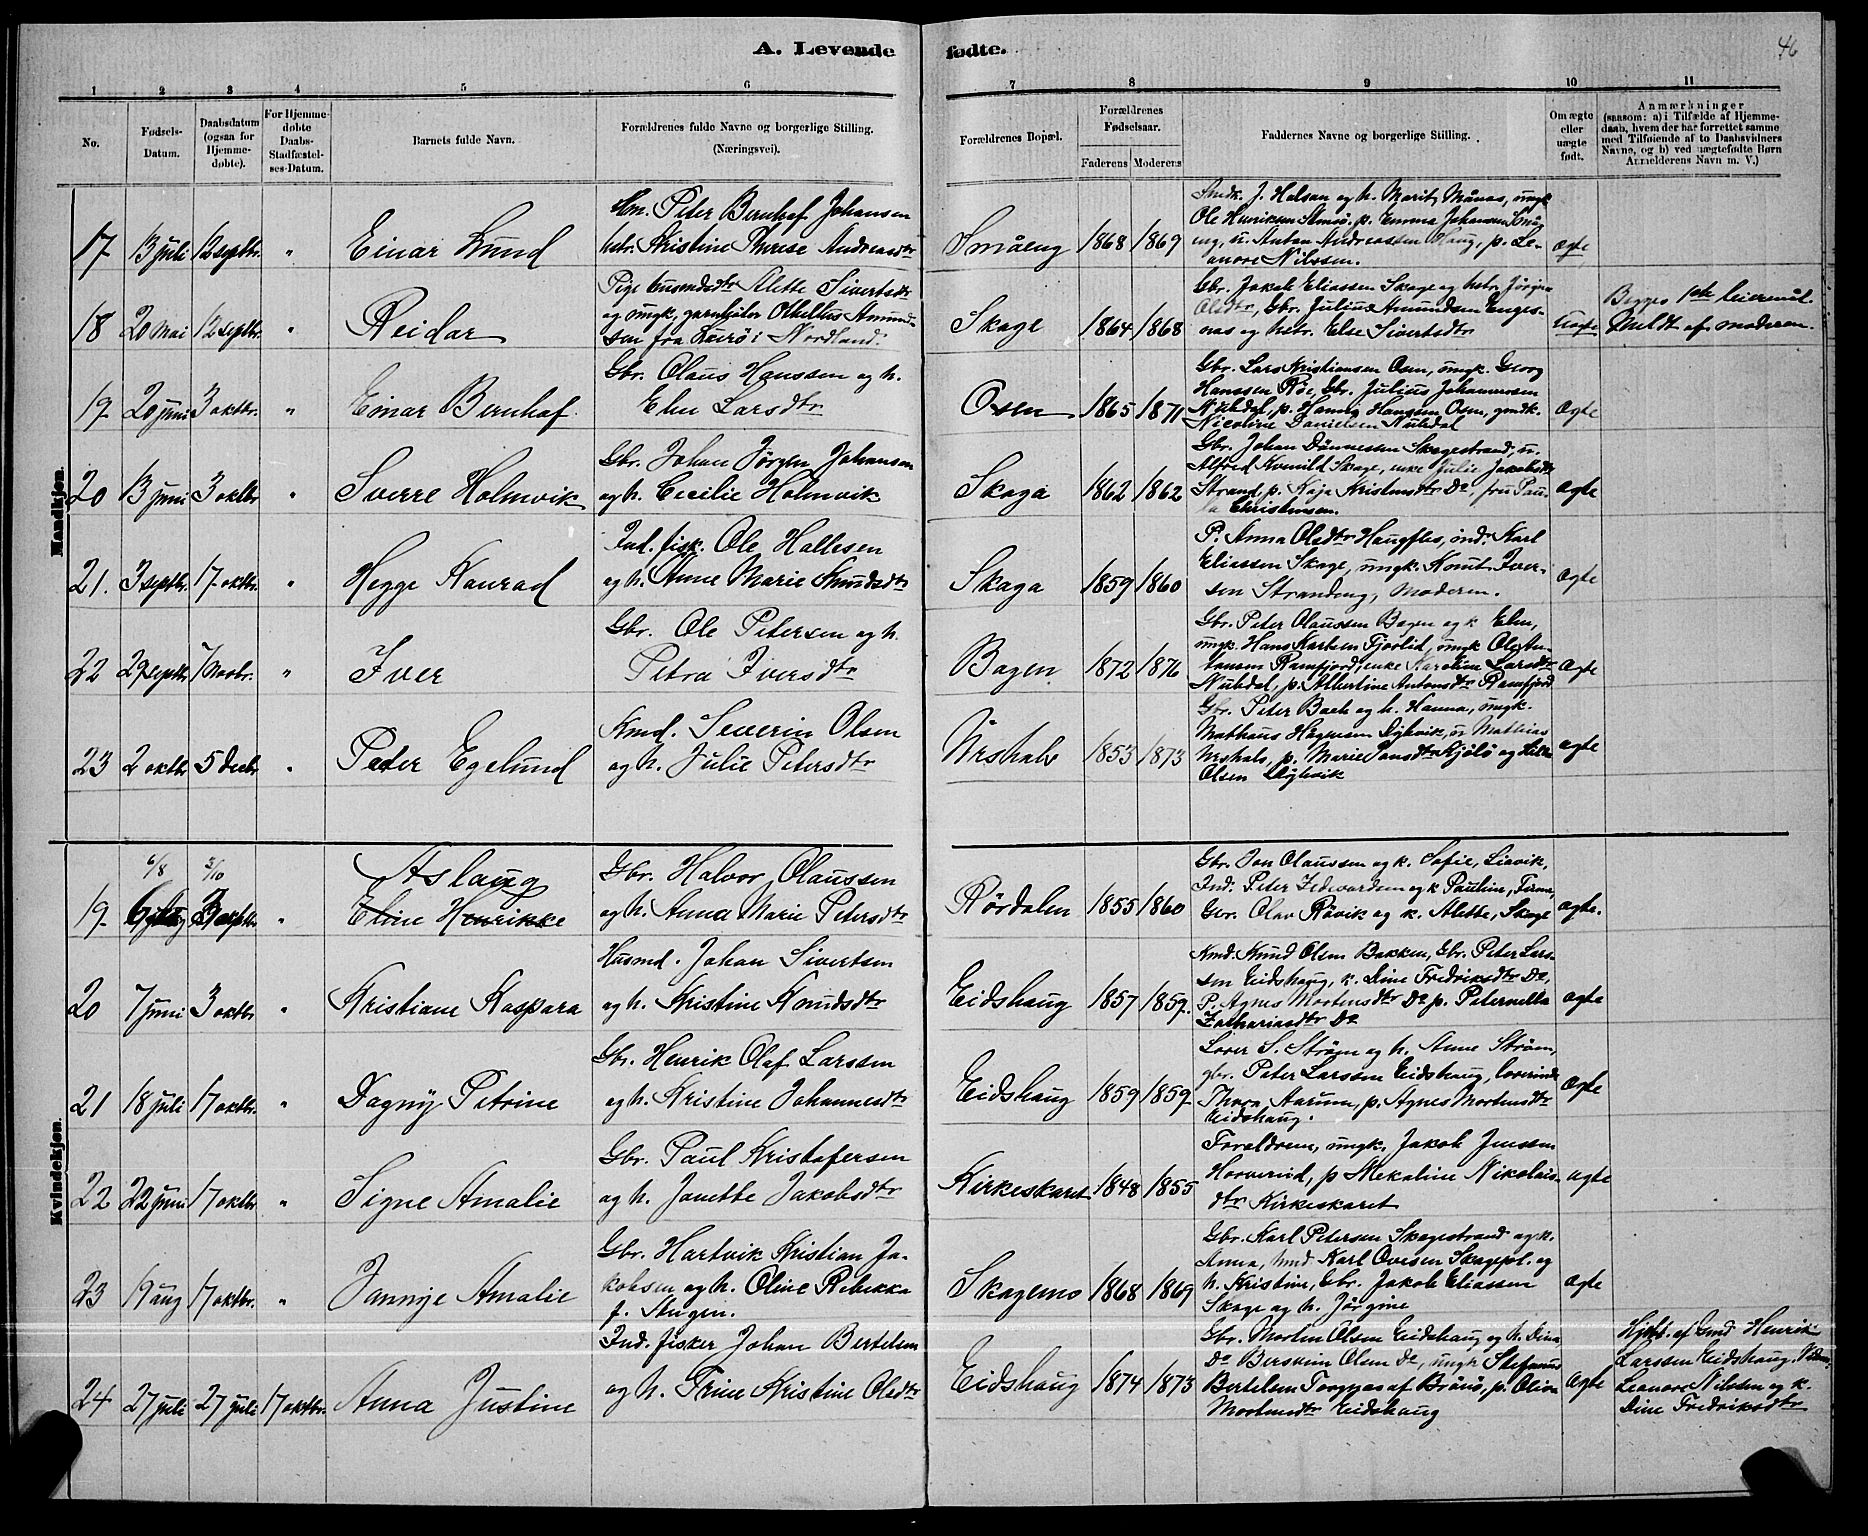 A. Levende fødte.
46
1 2 3 4 5 6 7 8 9 10 11
No.
Fødsels-Datum.
Daabsdatum (ogsaa for Hjemme-døbte).
For Hjemme-døbte Daabs-Stadfæstel-ses-Datum.
Barnets fulde Navn.
Forældrenes fulde Navne og borgerlige Stilling. (Næringsvei).
Forældrenes Bopæl.
Forældrenes Fødselsaar.
Faderens Moderens
Faddernes Navne og borgerlige Stilling.
Om ægte eller uægte født.
Anmærkninger (saasom: a) i Tilfælde af Hjemme-daab, hvem der har forrettet samme med Tilføiende af to Daabsvidners Navne, og b) ved uægtefødte Børn Anmelderens Navn m. V.)
Mandkjøn.
17 13 juli 12 septbr. " Einar Lund
Peter Bernhof Johansen
Kristine Therese Andreasdtr
Småeng 1868 1869
J. Halsan og h. Marit,
Ole Henriksen p. Emma Johansen
Anton Andreassen Haug, p. Le-
anore Nilssen.
ægte
18 20 mai 12 septbr. " Reidar
Pige Alette Sivertsdtr
og ungk. Othelius Amund-
sen fra Lurø i Nordland.
Skage 1864 1868
Gbr. Jakob Eliassen Skage og hstr. Jørgine
Olsdtr, Gbr. Julius Amundsen Enges-
nas og hstr. Else Sivertsdtr
Uægte
Begges 1ste leiermål.
Meldt af moderen.
19 20 juni 3 oktbr. " Einar Bernhof
Gbr. Olaus Hanssen og h.
Elen Larsdtr
Osen 1865 1871
Gbr. Lars Kristiansen Osen, ungk. Georg
Hanssen Røe, Gbr. Julius Johannessen
Nubdal, p. Hanna Hanssen Osen, gmdk.
Nicoline Danielsen Nubdal
ægte
20 13 juni 3 oktbr " Sverre Holmvik
Gbr. Johan Jørgen Johansen
og h. Cecilie Holmvik
Skage 1862 1862
Gbr. Johan Dønnessen Skagestrand, u.
Alfred Kvenild Skage, enke Julie Jakobsdtr
Strand, p. Kaja Kristensdtr Do, fru Pau-
la Christensen.
ægte
21. 3 septbr. 17 oktbr. " Hegge Konrad
Ind. fisk. Ole Hallesen
og h. Anne Marie Knudsdtr
Skage 1859 1860
P. Anna Olsdtr Haugfles, ind. Karl
Eliassen Skage, ungk. Knut Iver-
sen Strandeng, Moderen.
ægte
22 29 septbr 7 Novbr. " Iver
Gbr. Ole Petersen og h.
Petra Iversdtr
Bagen 1872 1876
Gbr. Peter Olaussen Bagen og k. Elen,
ungk. Hans Karlsen Fjørlid, ungk Ole An-
tonsen Ramfjord, enke Karoline Larsdtr
Nubdal, p. Albertine Antonsdtr Ramfjord
ægte
23 2 oktbr 5 Decbr " Peder Egelund
Severin Olsen
og h. Julie Petersdtr
Årshals 1853 1873
Gbr. Peter Bach og h. Hanna, ungk.
Mathias
p. Marie
Olsen
ægte
Kvindekjøn.
6/8 3/10
19. 3 " Aslaug
Eline Henrikke
Gbr. Halvor Olaussen
og h. Anna Marie Petersdtr
Rördalen 1855 1860
Gbr. Jon Olaussen og k. Sofie, Liavik,
Ind. Peter Zedevardsen og k Pauline,
Gbr. Olav Røvik og k. Alette, Skage
ægte.
20 7 juni 3 oktbr " Kristiane Kaspara
Husmd. Johan Sivertsen
og h. Kristine Knudsdtr
Eidshaug 1857 1859.
Knud Olsen Bakken, Gbr. Peter Lars-
sen Eidshaug, k. Dine Fredriksdtr Do,
P. Agnes Mortensdtr Do p. Peternella
Zachariasdtr Do
ægte
21 18 juli 17 oktbr. " Dagny Petrine
Gbr. Henrik Olaf Larssen
og h. Kristine Johannesdtr
Eidshaug 1859 1859
S. Strøm og h. Anne Strøm,
gbr. Peter Larssen Eidshaug, lærerinde
Thora Aarum, p. Agnes Mortensdtr
Eidshaug.
ægte
22 22 juni 17 oktbr " Signe Amalie
Gbr. Paul Kristofersen
og h. Janette Jakobsdtr
Kirkeskaret 1848 1855
Forældrene, ungk. Jakob Jenssen
Horvereid, p Mekaline Nikolais-
dtr Kirkeskaret
ægte
23 19 aug 17 oktbr. " Jannye Amalie
Gbr. Hartvik Kristian Ja-
kobsen og h. Oline Rebekka
f. Augen.
Skagemo 1868 1869
Gbr. Karl Petersen Skagestrand og k.
Anna, Karl Ovesen Skagepl. og
h. Kristine, Gbr. Jakob Eliassen
Skage og h. Jørgine
ægte
24 27 juli 27 juli 17 oktbr. Anna Justine
Ind. fisker Johan Bertelsen
og h. Trine Kristine Olsdtr
Eidshaug 1874 1873
Gbr. Morten Olsen Eidshaug og h. Dina,
Do Bersvein Olsen Do, ungk Stefanus
Bertelsen Torggas af Brönö, p. Olivia
Mortensdtr Eidshaug
ægte
Hjdbt. af Gmd Henrik
Larssen Eidshaug.
Leonore Nilssen og k.
Dine Fredriksdtr